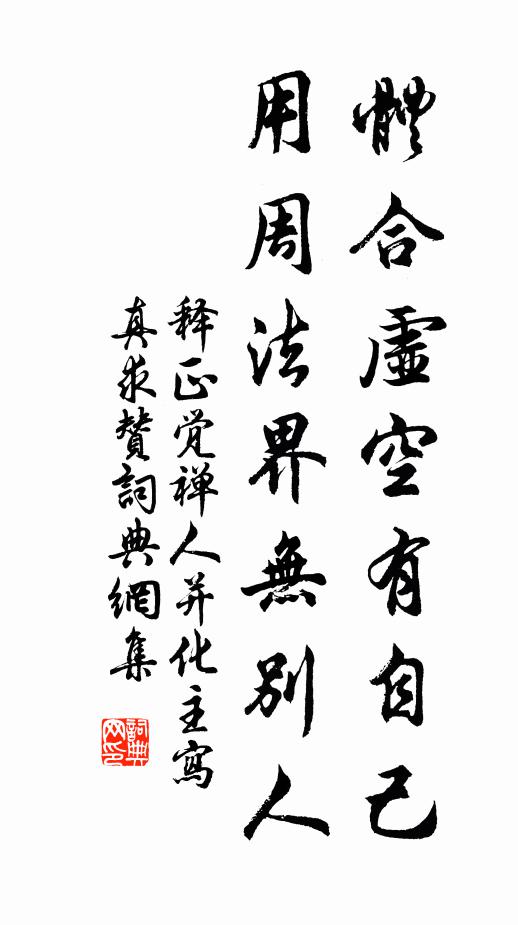 體合虛空有自己
用周法界無別人
释正觉禅人并化主寫
真求赞詞典網集
詞典網印